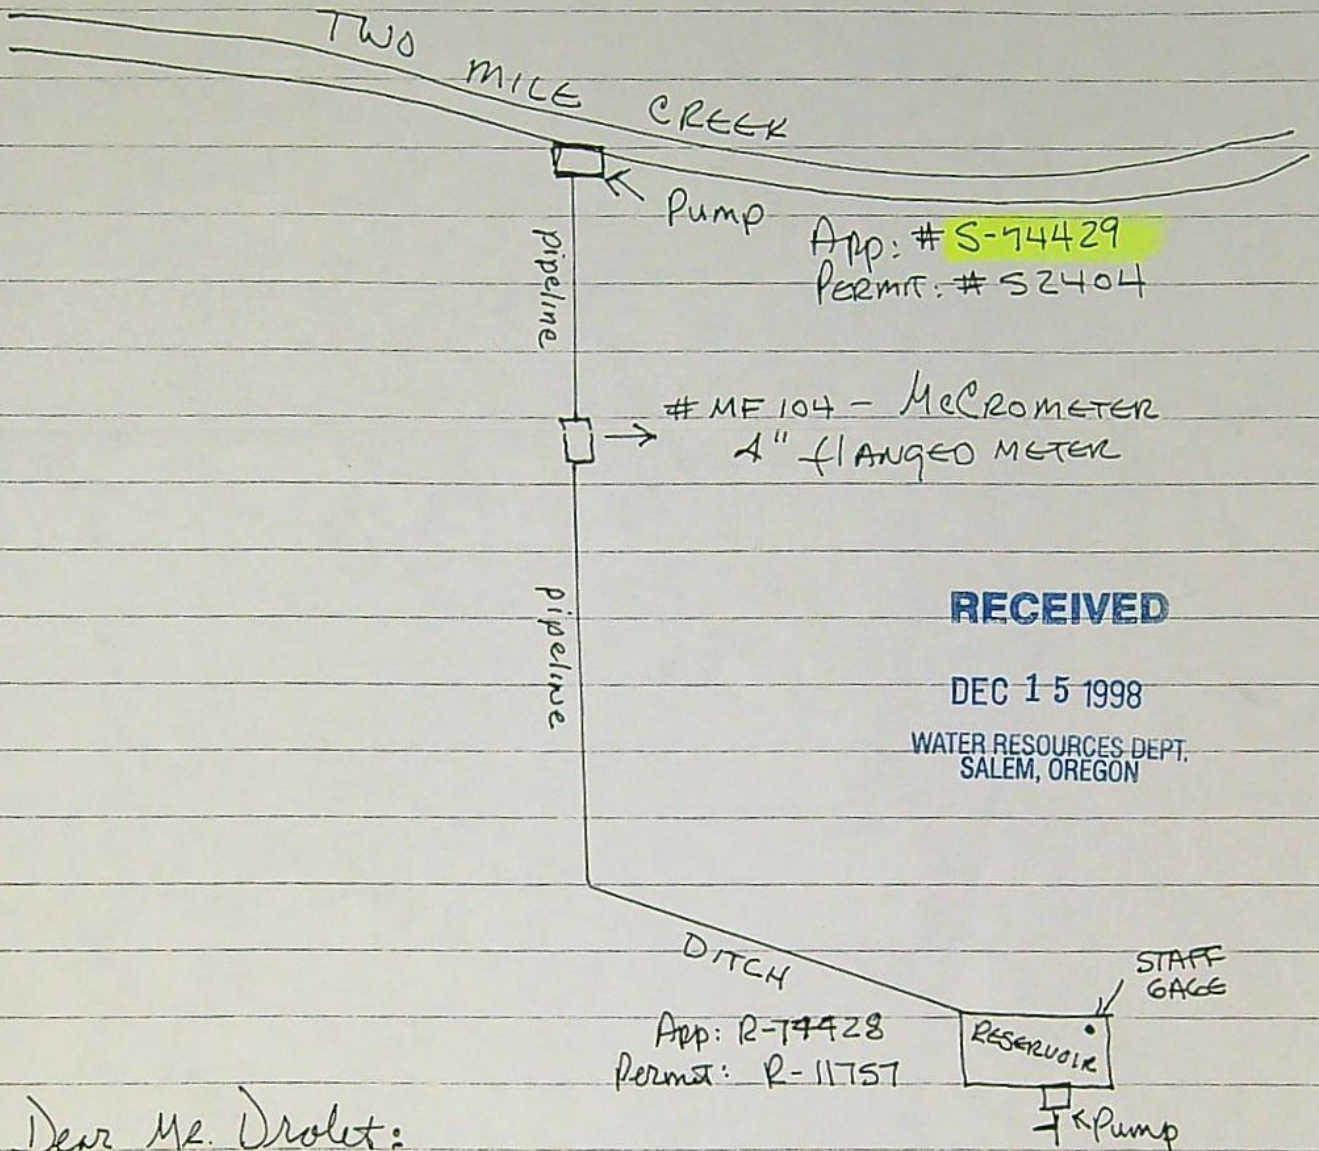 TWO MILE CREEK
Pump
App: # S-74429
PERMIT: # 52404
pipeline
# MF104 - McCROMETER
4" flANGED METER
pipeline
RECEIVED
DEC 15 1998
WATER RESOURCES DEPT.
SALEM, OREGON
DITCH
STAFF
GAGE
RESERVOIR
App: R-74428
Permit: R-11757
Pump
Dear Mr. Drolet: